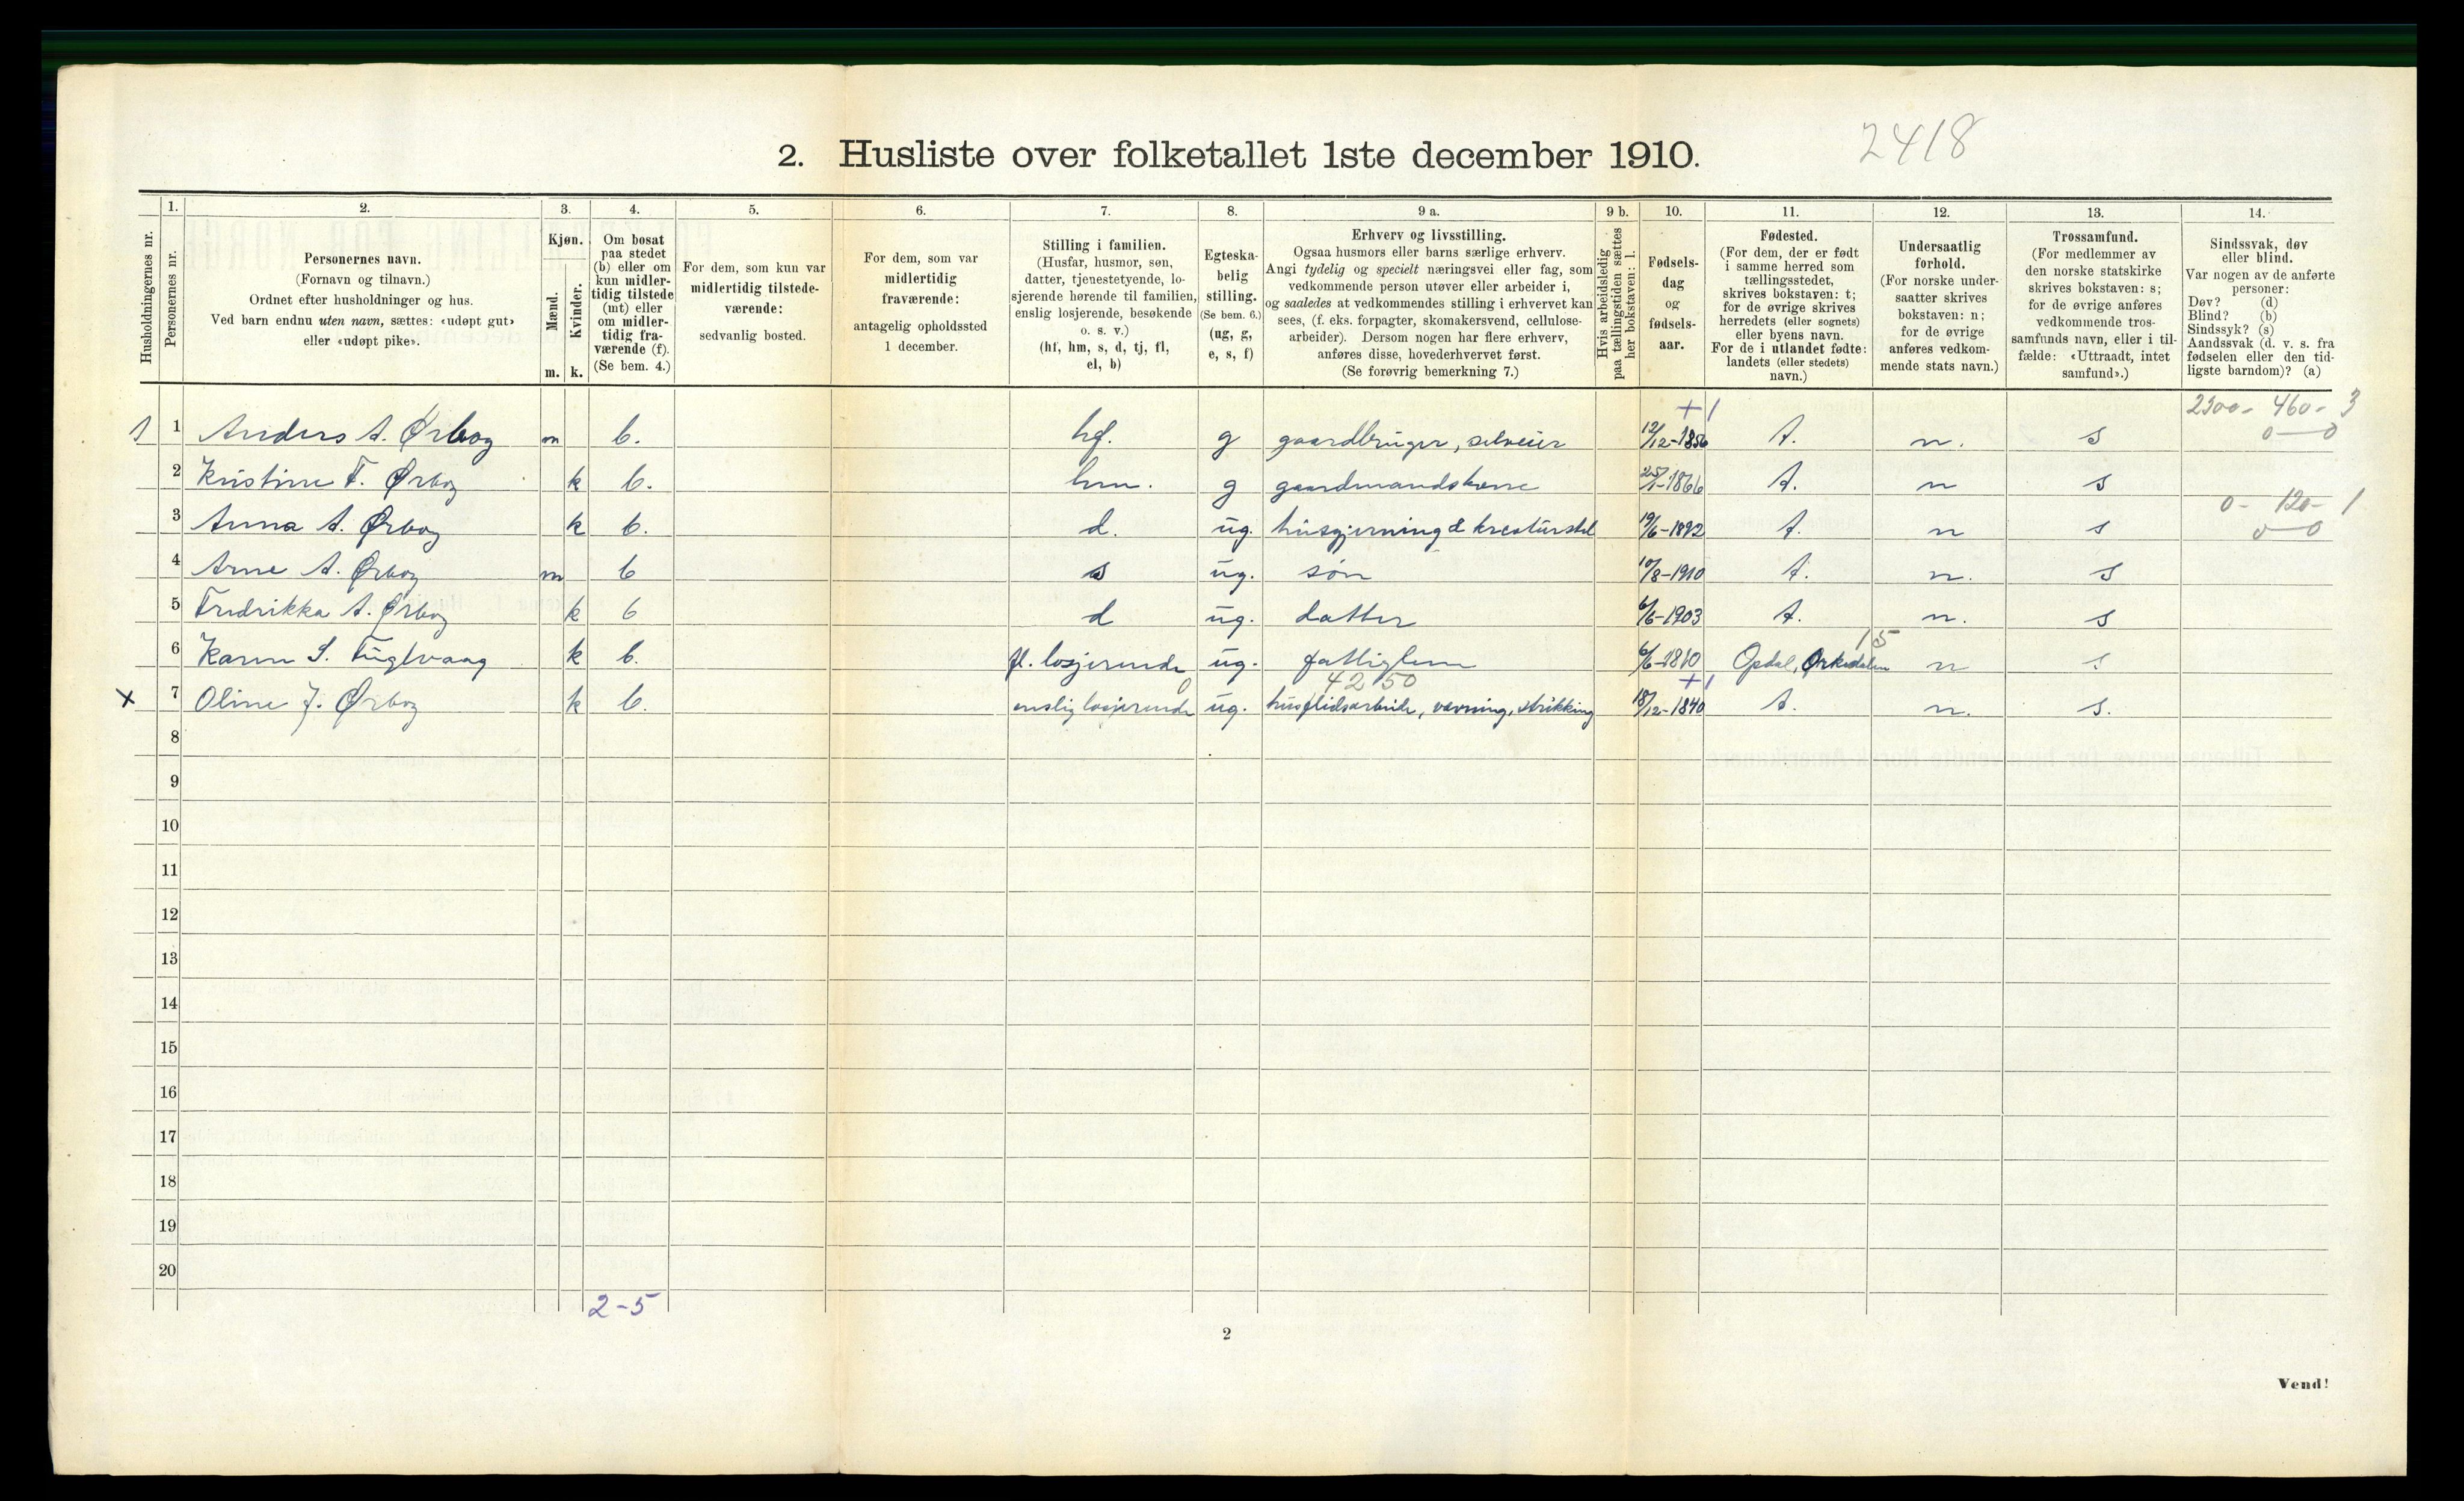 2. Husliste over folketallet 1ste december 1910.
2418
Husholdningernes nr.
1. Personernes nr.
2. Personernes navn.
(Fornavn og tilnavn.)
Ordnet efter husholdninger og hus.
Ved barn endnu uten navn, sættes: «udøpt gut»
eller «udøpt pike».
3. Kjøn.
Mænd. m.
Kvinder. k.
4. Om bosat
paa stedet
(b) eller om
kun midler-
tidig tilstede
(mt) eller
om midler-
tidig fra-
værende (f).
(Se bem. 4.)
5. For dem, som kun var
midlertidig tilstede-
værende:
sedvanlig bosted.
6. For dem, som var
midlertidig
fraværende:
antagelig opholdssted
1 december.
7. Stilling i familien.
(Husfar, husmor, søn,
datter, tjenestetyende, lo-
sjerende hørende til familien,
enslig losjerende, besøkende
o. s. v.)
(hf, hm, s, d, tj, fl,
el, b)
8. Egteska-
belig
stilling.
(Se bem. 6.)
(ug, g,
e, s, f)
9 a. Erhverv og livsstilling.
Ogsaa husmors eller barns særlige erhverv.
Angi tydelig og specielt næringsvei eller fag, som
vedkommende person utøver eller arbeider i,
og saaledes at vedkommendes stilling i erhvervet kan
sees, (f. eks. forpagter, skomakersvend, cellulose-
arbeider). Dersom nogen har flere erhverv,
anføres disse, hovederhvervet først.
(Se forøvrig bemerkning 7.)
9 b. Hvis arbeidsledig
paa tællingstiden sættes
her bokstaven: l.
10. Fødsels-
dag
og
fødsels-
aar.
11. Fødested.
(For dem, der er født
i samme herred som
tællingsstedet,
skrives bokstaven: t;
for de øvrige skrives
herredets (eller sognets)
eller byens navn.
For de i utlandet fødte:
landets (eller stedets)
navn.)
12. Undersaatlig
forhold.
(For norske under-
saatter skrives
bokstaven: n;
for de øvrige
anføres vedkom-
mende stats navn.)
13. Trossamfund.
(For medlemmer av
den norske statskirke
skrives bokstaven: s;
for de øvrige anføres
vedkommende tros-
samfunds navn, eller i til-
fælde: «Uttraadt, intet
samfund».)
14. Sindssvak, døv
eller blind.
Var nogen av de anførte
personer:
Døv? (d)
Blind? (b)
Sindssyk? (s)
Aandssvak (d. v. s. fra
fødselen eller den tid-
ligste barndom)? (a)
+ 1 2300- 460- 3
1 1 Anders A. Ørbog m b. hf. g gaardbruger, selveier 12/12-1856 t. n. s 0—0
2 Kristine F. Ørbog k b. hm. g gaardmandskone 25/1-1866 t. n s
0- 120- 1
3 Anna A. Ørbog k b. d. ug. husgjerning & kreaturstel 19/6-1892 t. n s 0—0
4 Arne A. Ørbog m b s ug. søn 10/8-1910 t. n. s
5 Fredrikka A. Ørbog k b d ug. datter 6/6-1903 t. n. s
15
6 Karen S. Fuglvaag k b. fl. losjerende ug. fattiglem 6/6-1810 Opdal, Orkedalen n s
0 42 50 + 1
x 7 Oline J. Ørbog k b. enslig losjerende ug. husflidsarbeide, vævning, strikking 18/12-1840 t. n. s.
8
9
10
11
12
13
14
15
16
17
18
19
20
2-5
2
Vend!